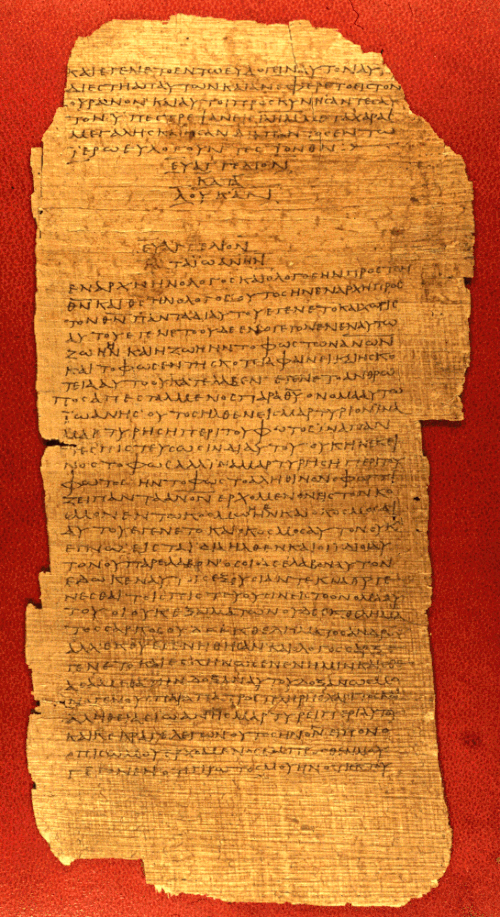 ΚΑΙΕΓΕΝΕΤΟΕΝΤΩΕΥΛΟΓΕΙΝΑΥΤΟΝΑΥ
ΔΙΕϹΤΗΑΠΑΥΤΩΝΚΑΙΑΝΕΦΕΡΕΤΟΕΙϹΤΟΝ
ΟΥΡΑΝΟΝΚΑΙΑΥΤΟΙΠΡΟϹΚΥΝΗϹΑΝΤΕϹΑΥ
ΤΟΝΥΠΕϹΤΡΕΨΑΝΕΙϹ ΜΕΤΑΧΑΡΑϹ
ΜΕΓΑΛΗϹΚΑΙΗϹΑΝΔΙΑΠΑΝΤΟϹΕΝΤΩ
ΪΕΡΩΕΥΛΟΓΟΥΝΤΕϹΤΟΝΘΝ
ΕΥΑΓΓΕΛΙΟΝ
ΚΑΤΑ
ΛΟΥΚΑΝ
ΕΥΑΓΓΕΛΙΟΝ
ΚΑΤΑΪΩΑΝΗΝ
ΕΝΑΡΧΗΗΝΟΛΟΓΟϹΚΑΙΟΛΟΓΟϹΗΝΠΡΟϹΤΟΝ
ΘΝΚΑΙΘϹΗΝΟΛΟΓΟϹΟΥΤΟϹΗΝΕΝΑΡΧΗΠΡΟϹ
ΤΟΝΘΝΠΑΝΤΑΔΙΑΥΤΟΥΕΓΕΝΕΤΟΚΑΙΧΩΡΙϹ
ΑΥΤΟΥΕΓΕΝΕΤΟΟΥΔΕΕΝΟΓΕΓΟΝΕΝΕΝΑΥΤΩ
ΖΩΗΗΝΚΑΙΗΖΩΗΗΝΤΟΦΩϹΤΩΝΑΝΩΝ
ΚΑΙΤΟΦΩϹΕΝΤΗϹΚΟΤΕΙΑΦΑΙΝΕΙΚΑΙΗϹΚΟ
ΤΕΙΑΑΥΤΟΟΥΚΑΤΕΛΑΒΕΝΕΓΕΝΕΤΟΑΝΘΡΩ
ΠΟϹΑΠΕϹΤΑΛΜΕΝΟϹΠΑΡΑΘΥΟΝΟΜΑΑΥΤΩ
ΪΩΑΝΗϹΟΥΤΟϹΗΛΘΕΝΕΙϹΜΑΡΤΥΡΙΟΝΙΝΑ
ΜΑΡΤΥΡΗϹΗΠΕΡΙΤΟΥΦΩΤΟϹΙΝΑΠΑΝ
ΤΕϹΠΙϹΤΕΥϹΩϹΙΝΔΙΑΥΤΟΥΟΥΚΗΝΕΚΕΙ
ΝΟϹΤΟΦΩϹΑΛΛΙΝΑΜΑΡΤΥΡΗϹΗΠΕΡΙΤΟΥ
ΦΩΤΟϹΗΝΤΟΦΩϹΤΟΑΛΗΘΙΝΟΝΟΦΩΤΙ
ΖΕΙΠΑΝΤΑΑΝΟΝΕΡΧΟΜΕΝΟΝΕΙϹΤΟΝΚΟ
ϹΜΟΝΕΝΤΩΚΟϹΜΩΗΝΚΑΙΟΚΟϹΜΟϹΔΙ
ΑΥΤΟΥΕΓΕΝΕΤΟΚΑΙΟΚΟϹΜΟϹΑΥΤΟΝΟΥΚ
ΕΓΝΩΕΙϹΤΑΙΔΙΑΗΛΘΕΝΚΑΙΟΙΙΔΙΟΙΑΥ
ΤΟΝΟΥΠΑΡΕΛΑΒΟΝΟϹΟΙΔΕΕΛΑΒΟΝΑΥΤΟΝ
ΕΔΩΚΕΝΑΥΤΟΙϹΕΞΟΥϹΙΑΝΤΕΚΝΑΘΥΓΕ
ΝΕϹΘΑΙΤΟΙϹΠΙϹΤΕΥΟΥϹΙΝΕΙϹΤΟΟΝΟΜΑΑΥ
ΤΟΥΟΙΟΥΚΕΞΑΙΜΑΤΩΝΟΥΔΕΕΚΘΕΛΗΜΑ
ΤΟϹϹΑΡΚΟϹΟΥΔΕΕΚΘΕΛΗΜΑΤΟϹΑΝΔΡΟϹ
ΑΛΛΕΚΘΥΕΓΕΝΗΘΗϹΑΝΚΑΙΟΛΟΓΟϹϹΑΡΞΕ
ΓΕΝΕΤΟΚΑΙΕϹΚΗΝΩϹΕΝΕΝΗΜΙΝΚΑΙΕΘΕ
ΑϹΑΜΕΘΑΤΗΝΔΟΞΑΝΑΥΤΟΥΔΟΞΑΝΩϹΜΟ
ΝΟΓΕΝΟΥϹΠΑΡΑΠΑΤΡΟϹΠΛΗΡΗϹΧΑΡΙΤΟϹΚΑΙ
ΑΛΗΘΕΙΑϹΪΩΑΝΗϹΜΑΡΤΥΡΕΙΠΕΡΙΑΥΤΟΥ
ΚΑΙΚΕΚΡΑΓΕΝΛΕΓΩΝΟΥΤΟϹΗΝΟΝΕΙΠΟΝΟ
ΟΠΙϹΩΜΟΥΕΡΧΟΜΕΝΟϹΕΜΠΡΟϹΘΕΝΜΟΥ
ΓΕΓΟΝΕΝΟΤΙΠΡΩΤΟϹΜΟΥΗΝΟΤΙΕΚΤΟΥ